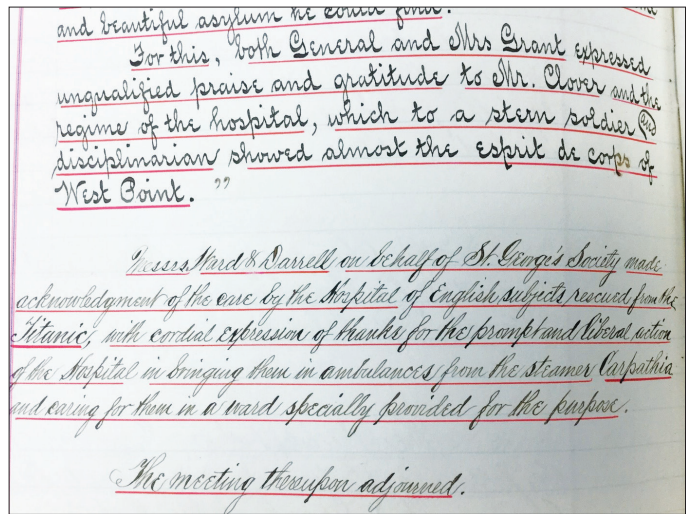 and beautiful asylum he could find.
For this, both General and Mrs Grant expressed
unqualified praise and gratitude to Mr. Clover and the
regime of the hospital, which to a stern soldier and
disciplinarian showed almost the esprit de corps of
West Point. "
Messrs. Ward & Darrell on behalf of St. George's Society made
acknowledgment of the care by the Hospital of English subjects, rescued from the
Titanic, with cordial expression of thanks for the prompt and liberal action
of the Hospital in bringing them in ambulances from the steamer Carpathia
and caring for them in a ward specially provided for the purpose.
The meeting thereupon adjourned.